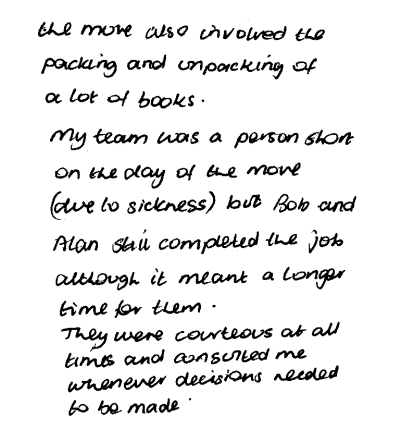 the move also involved the
packing and unpacking of
a lot of books.
My team was a person short
on the day of the move
(due to sickness) but Bob and
Alan still completed the job
although it meant a longer
time for them.
They were courteous at all
times and consulted me
whenever decisions needed
to be made.